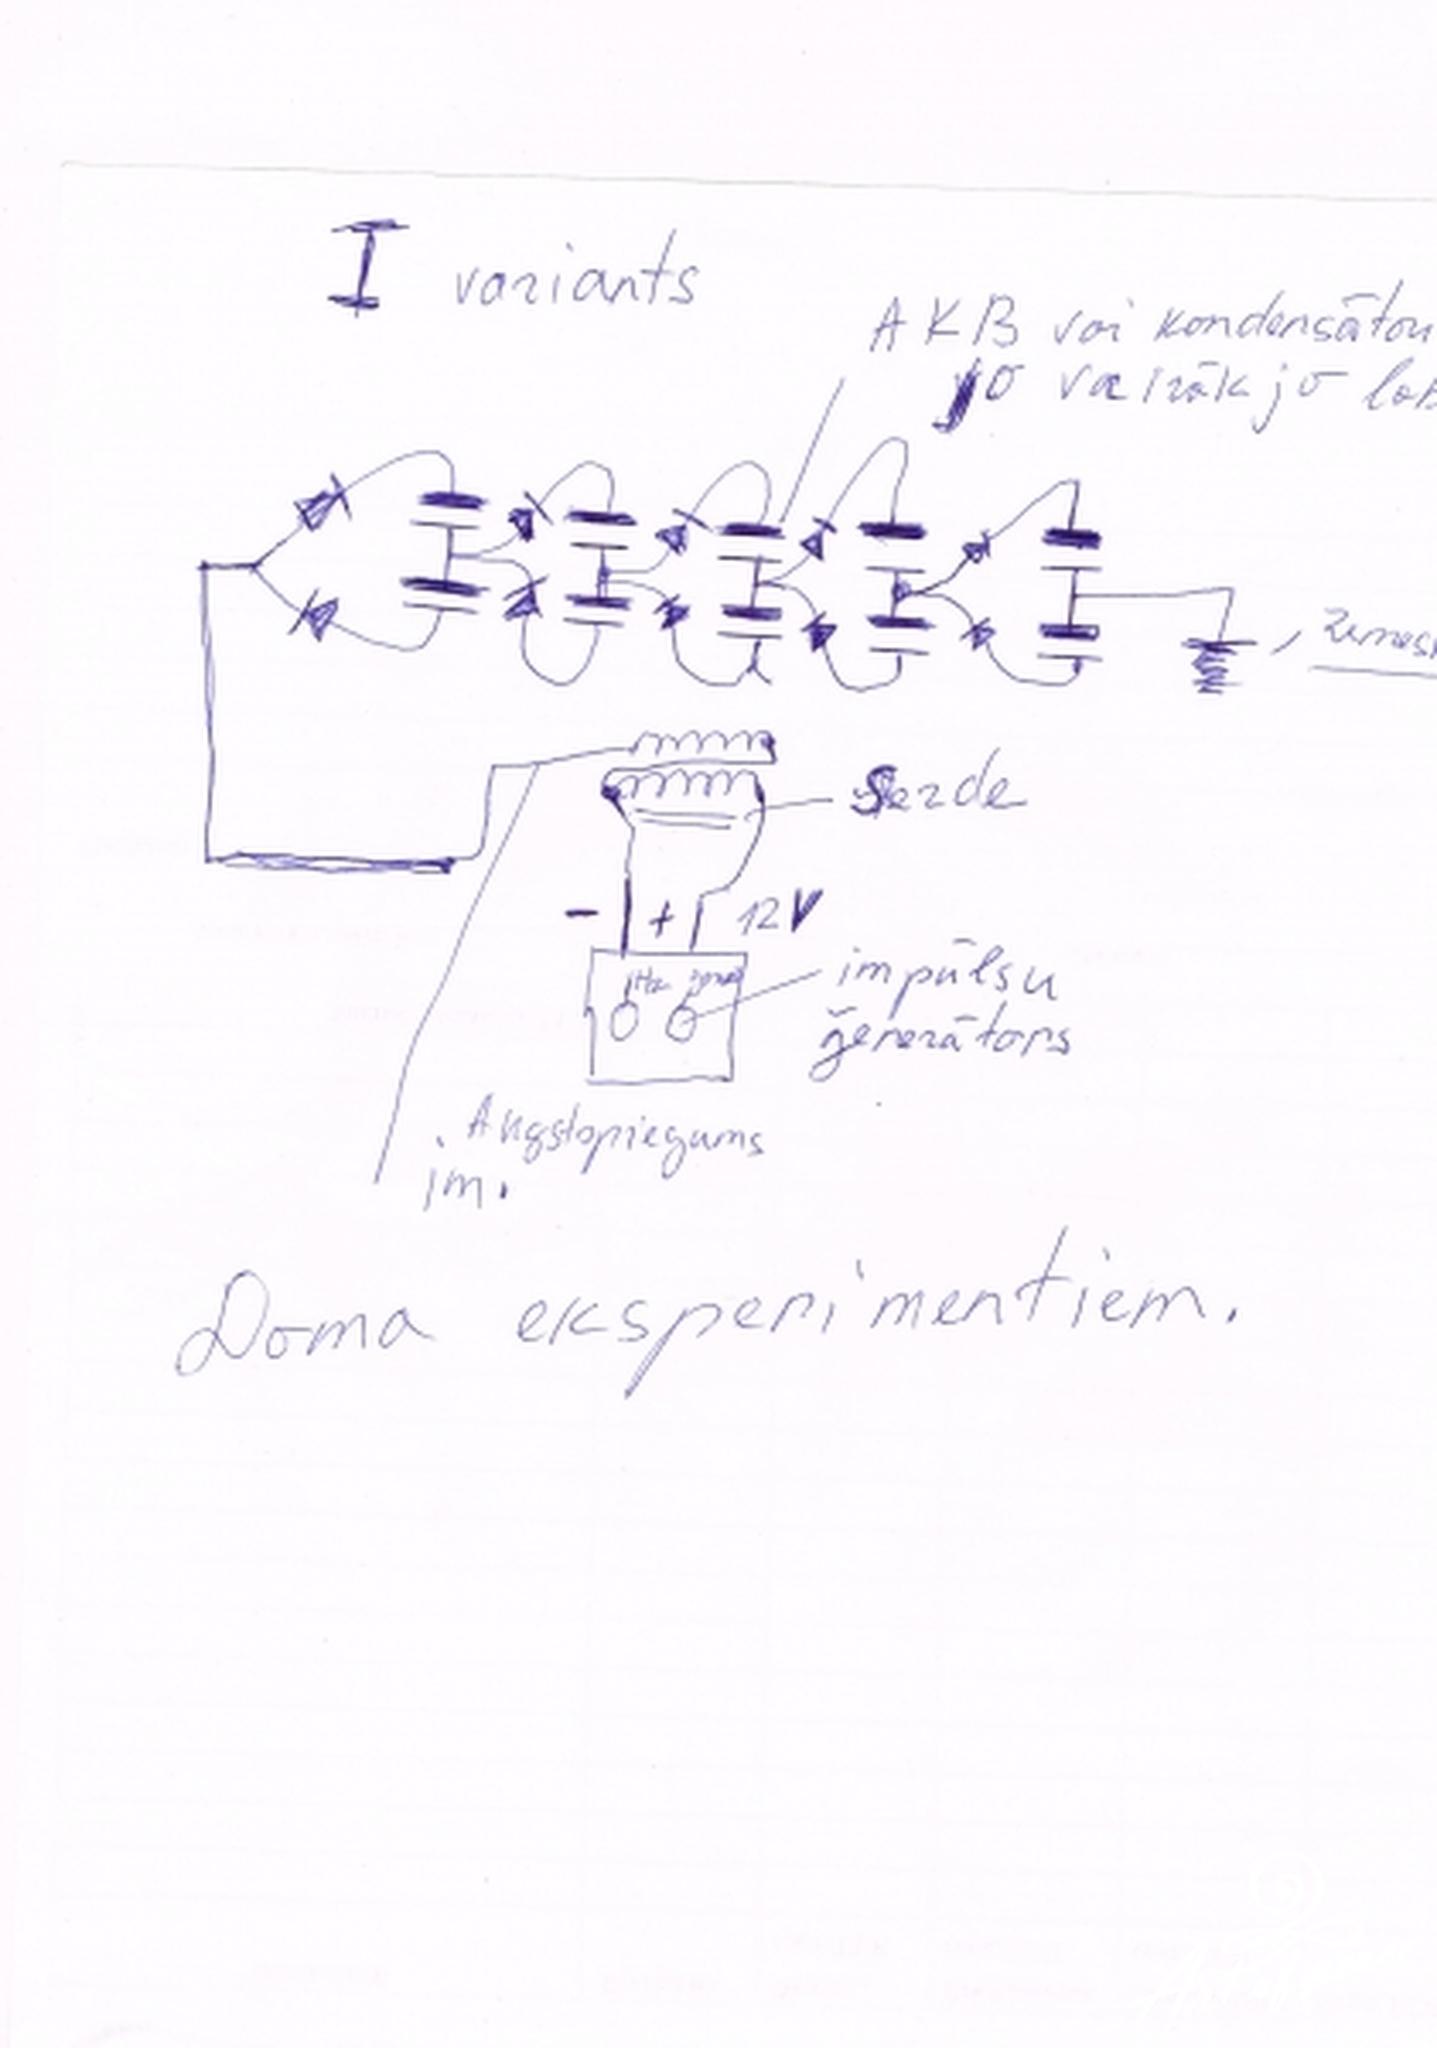 I variants
AKB vai kondensātori
jo vairāk jo lab
Zemes
Serde
- + 12V
Hz
impūlsu
ģenerātors
Augstspriegums
im.
Doma eksperimentiem.